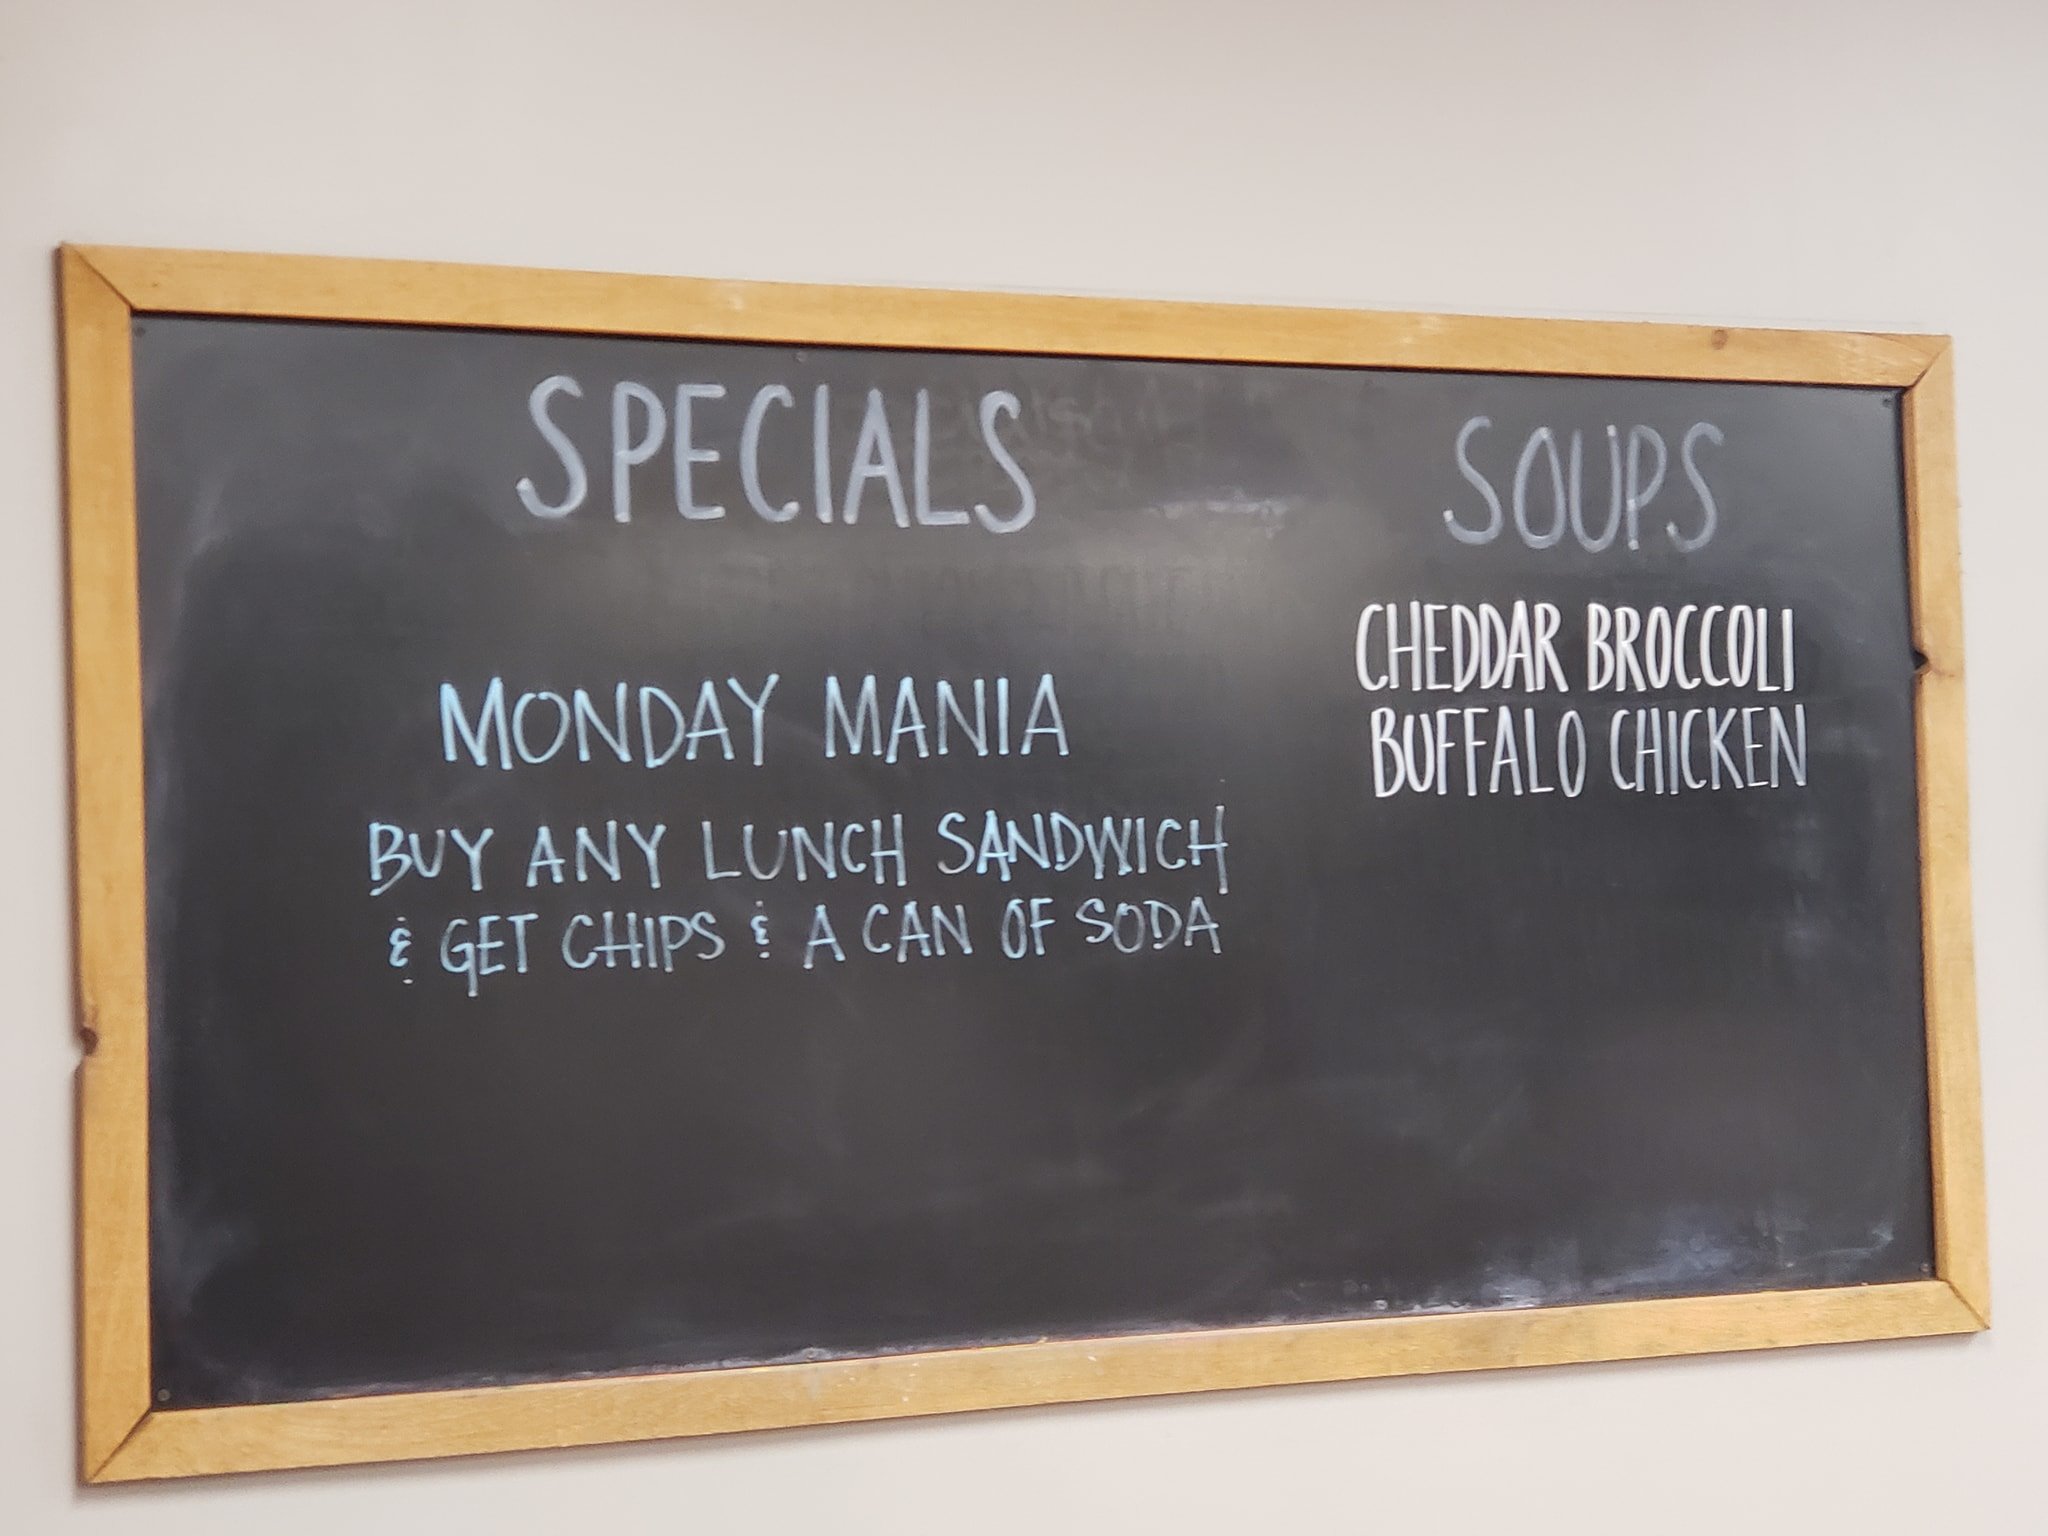 SPECIALS
MONDAY MANIA
BUY ANY LUNCH SANDWICH
& GET CHIPS & A CAN OF SODA
SOUPS
CHEDDAR BROCCOLI
BUFFALO CHICKEN